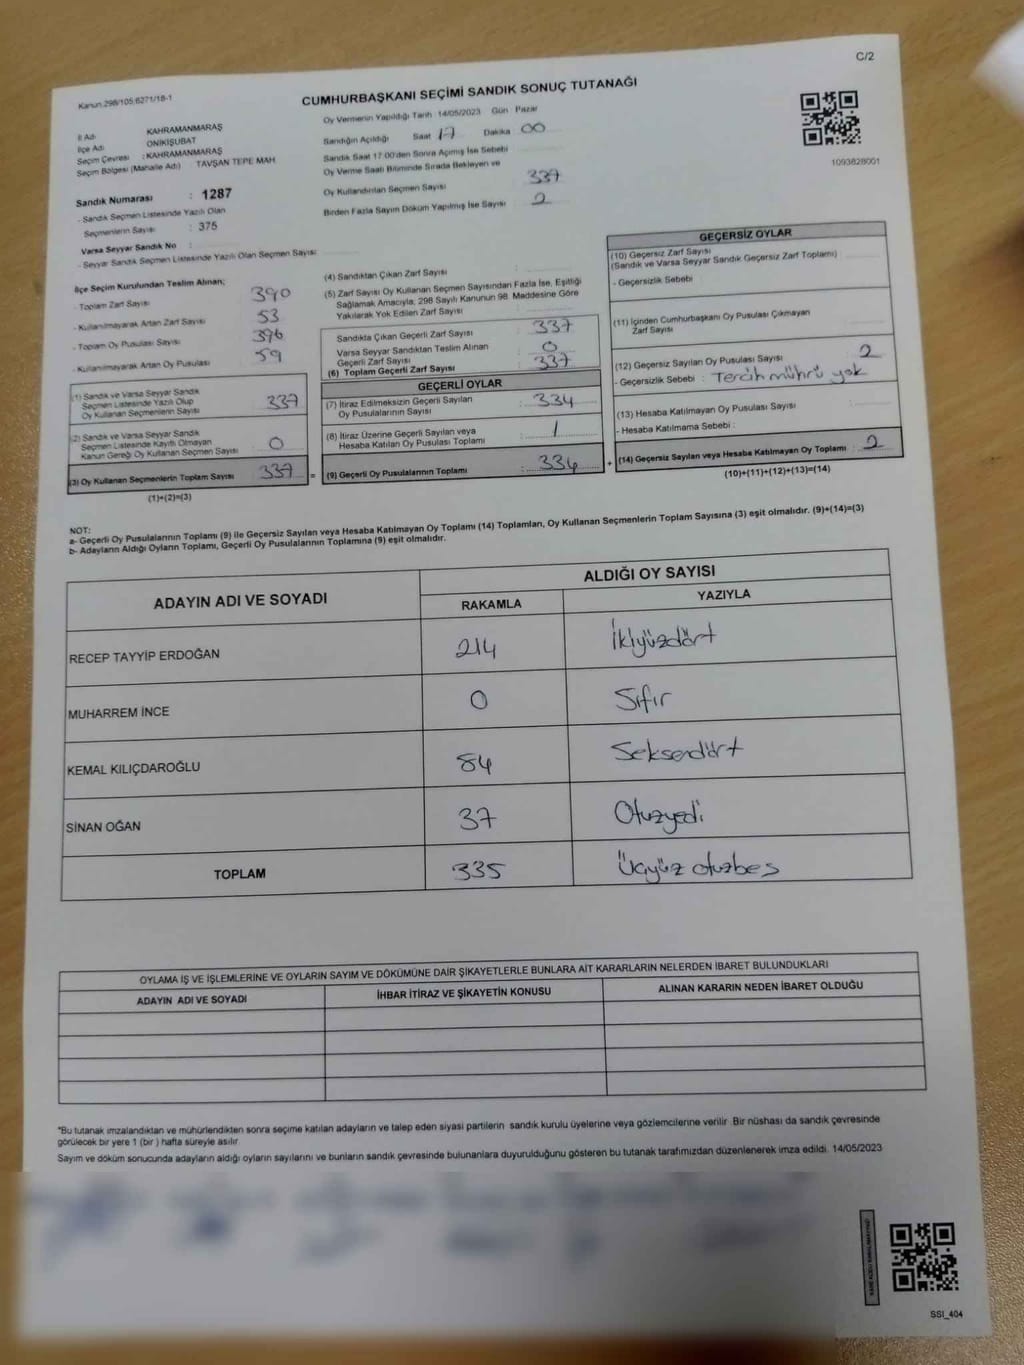 C/2
Kanun.298/105;6271/18-1
CUMHURBAŞKANI SEÇİMİ SANDIK SONUÇ TUTANAĞI
İl Adı KAHRAMANMARAŞ
İlçe Adı ONİKİŞUBAT
Seçim Çevresi : KAHRAMANMARAŞ
Seçim Bölgesi (Mahalle Adı) TAVŞAN TEPE MAH.
Oy Vermenin Yapıldığı Tarih 14/05/2023 Gün Pazar
Sandığın Açıldığı Saat 17 Dakika 00
Sandık Saat 17.00'den Sonra Açılmış İse Sebebi
Oy Verme Saati Bitiminde Sırada Bekleyen ve
Oy Kullandırılan Seçmen Sayısı 337
Birden Fazla Sayım Döküm Yapılmış İse Sayısı 2
1093828001
Sandık Numarası : 1287
- Sandık Seçmen Listesinde Yazılı Olan
Seçmenlerin Sayısı : 375
Varsa Seyyar Sandık No :
- Seyyar Sandık Seçmen Listesinde Yazılı Olan Seçmen Sayısı:
İlçe Seçim Kurulundan Teslim Alınan;
- Toplam Zarf Sayısı 390
- Kullanılmayarak Artan Zarf Sayısı 53
- Toplam Oy Pusulası Sayısı 396
- Kullanılmayarak Artan Oy Pusulası 59
(1) Sandık ve Varsa Seyyar Sandık
Seçmen Listesinde Yazılı Olup
Oy Kullanan Seçmenlerin Sayısı 337
(2) Sandık ve Varsa Seyyar Sandık
Seçmen Listesinde Kayıtlı Olmayan
Kanun Gereği Oy Kullanan Seçmen Sayısı 0
(3) Oy Kullanan Seçmenlerin Toplam Sayısı : 337 =
(1)+(2)=(3)
(4) Sandıktan Çıkan Zarf Sayısı :
(5) Zarf Sayısı Oy Kullanan Seçmen Sayısından Fazla İse, Eşitliği
Sağlamak Amacıyla, 298 Sayılı Kanunun 98. Maddesine Göre
Yakılarak Yok Edilen Zarf Sayısı :
Sandıkta Çıkan Geçerli Zarf Sayısı : 337
Varsa Seyyar Sandıktan Teslim Alınan
Geçerli Zarf Sayısı : 0
(6) Toplam Geçerli Zarf Sayısı : 337
GEÇERLİ OYLAR
(7) İtiraz Edilmeksizin Geçerli Sayılan
Oy Pusulalarının Sayısı : 334
(8) İtiraz Üzerine Geçerli Sayılan veya
Hesaba Katılan Oy Pusulası Toplamı : 1
(9) Geçerli Oy Pusulalarının Toplamı : 334 +
GEÇERSİZ OYLAR
(10) Geçersiz Zarf Sayısı
(Sandık ve Varsa Seyyar Sandık Geçersiz Zarf Toplamı)
- Geçersizlik Sebebi
(11) İçinden Cumhurbaşkanı Oy Pusulası Çıkmayan
Zarf Sayısı
(12) Geçersiz Sayılan Oy Pusulası Sayısı : 2
- Geçersizlik Sebebi : Tercih mührü yok
(13) Hesaba Katılmayan Oy Pusulası Sayısı :
- Hesaba Katılmama Sebebi :
(14) Geçersiz Sayılan veya Hesaba Katılmayan Oy Toplamı : 2
(10)+(11)+(12)+(13)=(14)
NOT:
a- Geçerli Oy Pusulalarının Toplamı (9) ile Geçersiz Sayılan veya Hesaba Katılmayan Oy Toplamı (14) Toplamları, Oy Kullanan Seçmenlerin Toplam Sayısına (3) eşit olmalıdır. (9)+(14)=(3)
b- Adayların Aldığı Oyların Toplamı, Geçerli Oy Pusulalarının Toplamına (9) eşit olmalıdır.
ADAYIN ADI VE SOYADI
ALDIĞI OY SAYISI
RAKAMLA YAZIYLA
RECEP TAYYİP ERDOĞAN 214 İkiyüzdört
MUHARREM İNCE 0 Sıfır
KEMAL KILIÇDAROĞLU 84 Seksendört
SİNAN OĞAN 37 Otuzyedi
TOPLAM 335 Üçyüz otuzbeş
OYLAMA İŞ VE İŞLEMLERİNE VE OYLARIN SAYIM VE DÖKÜMÜNE DAİR ŞİKAYETLERLE BUNLARA AİT KARARLARIN NELERDEN İBARET BULUNDUKLARI
ADAYIN ADI VE SOYADI İHBAR İTİRAZ VE ŞİKAYETİN KONUSU ALINAN KARARIN NEDEN İBARET OLDUĞU
"Bu tutanak imzalandıktan ve mühürlendikten sonra seçime katılan adayların ve talep eden siyasi partilerin sandık kurulu üyelerine veya gözlemcilerine verilir. Bir nüshası da sandık çevresinde
görülecek bir yere 1 (bir) hafta süreyle asılır.
Sayım ve döküm sonucunda adayların aldığı oyların sayılarını ve bunların sandık çevresinde bulunanlara duyurulduğunu gösteren bu tutanak tarafımızdan düzenlenerek imza edildi. 14/05/2023
SSI_404